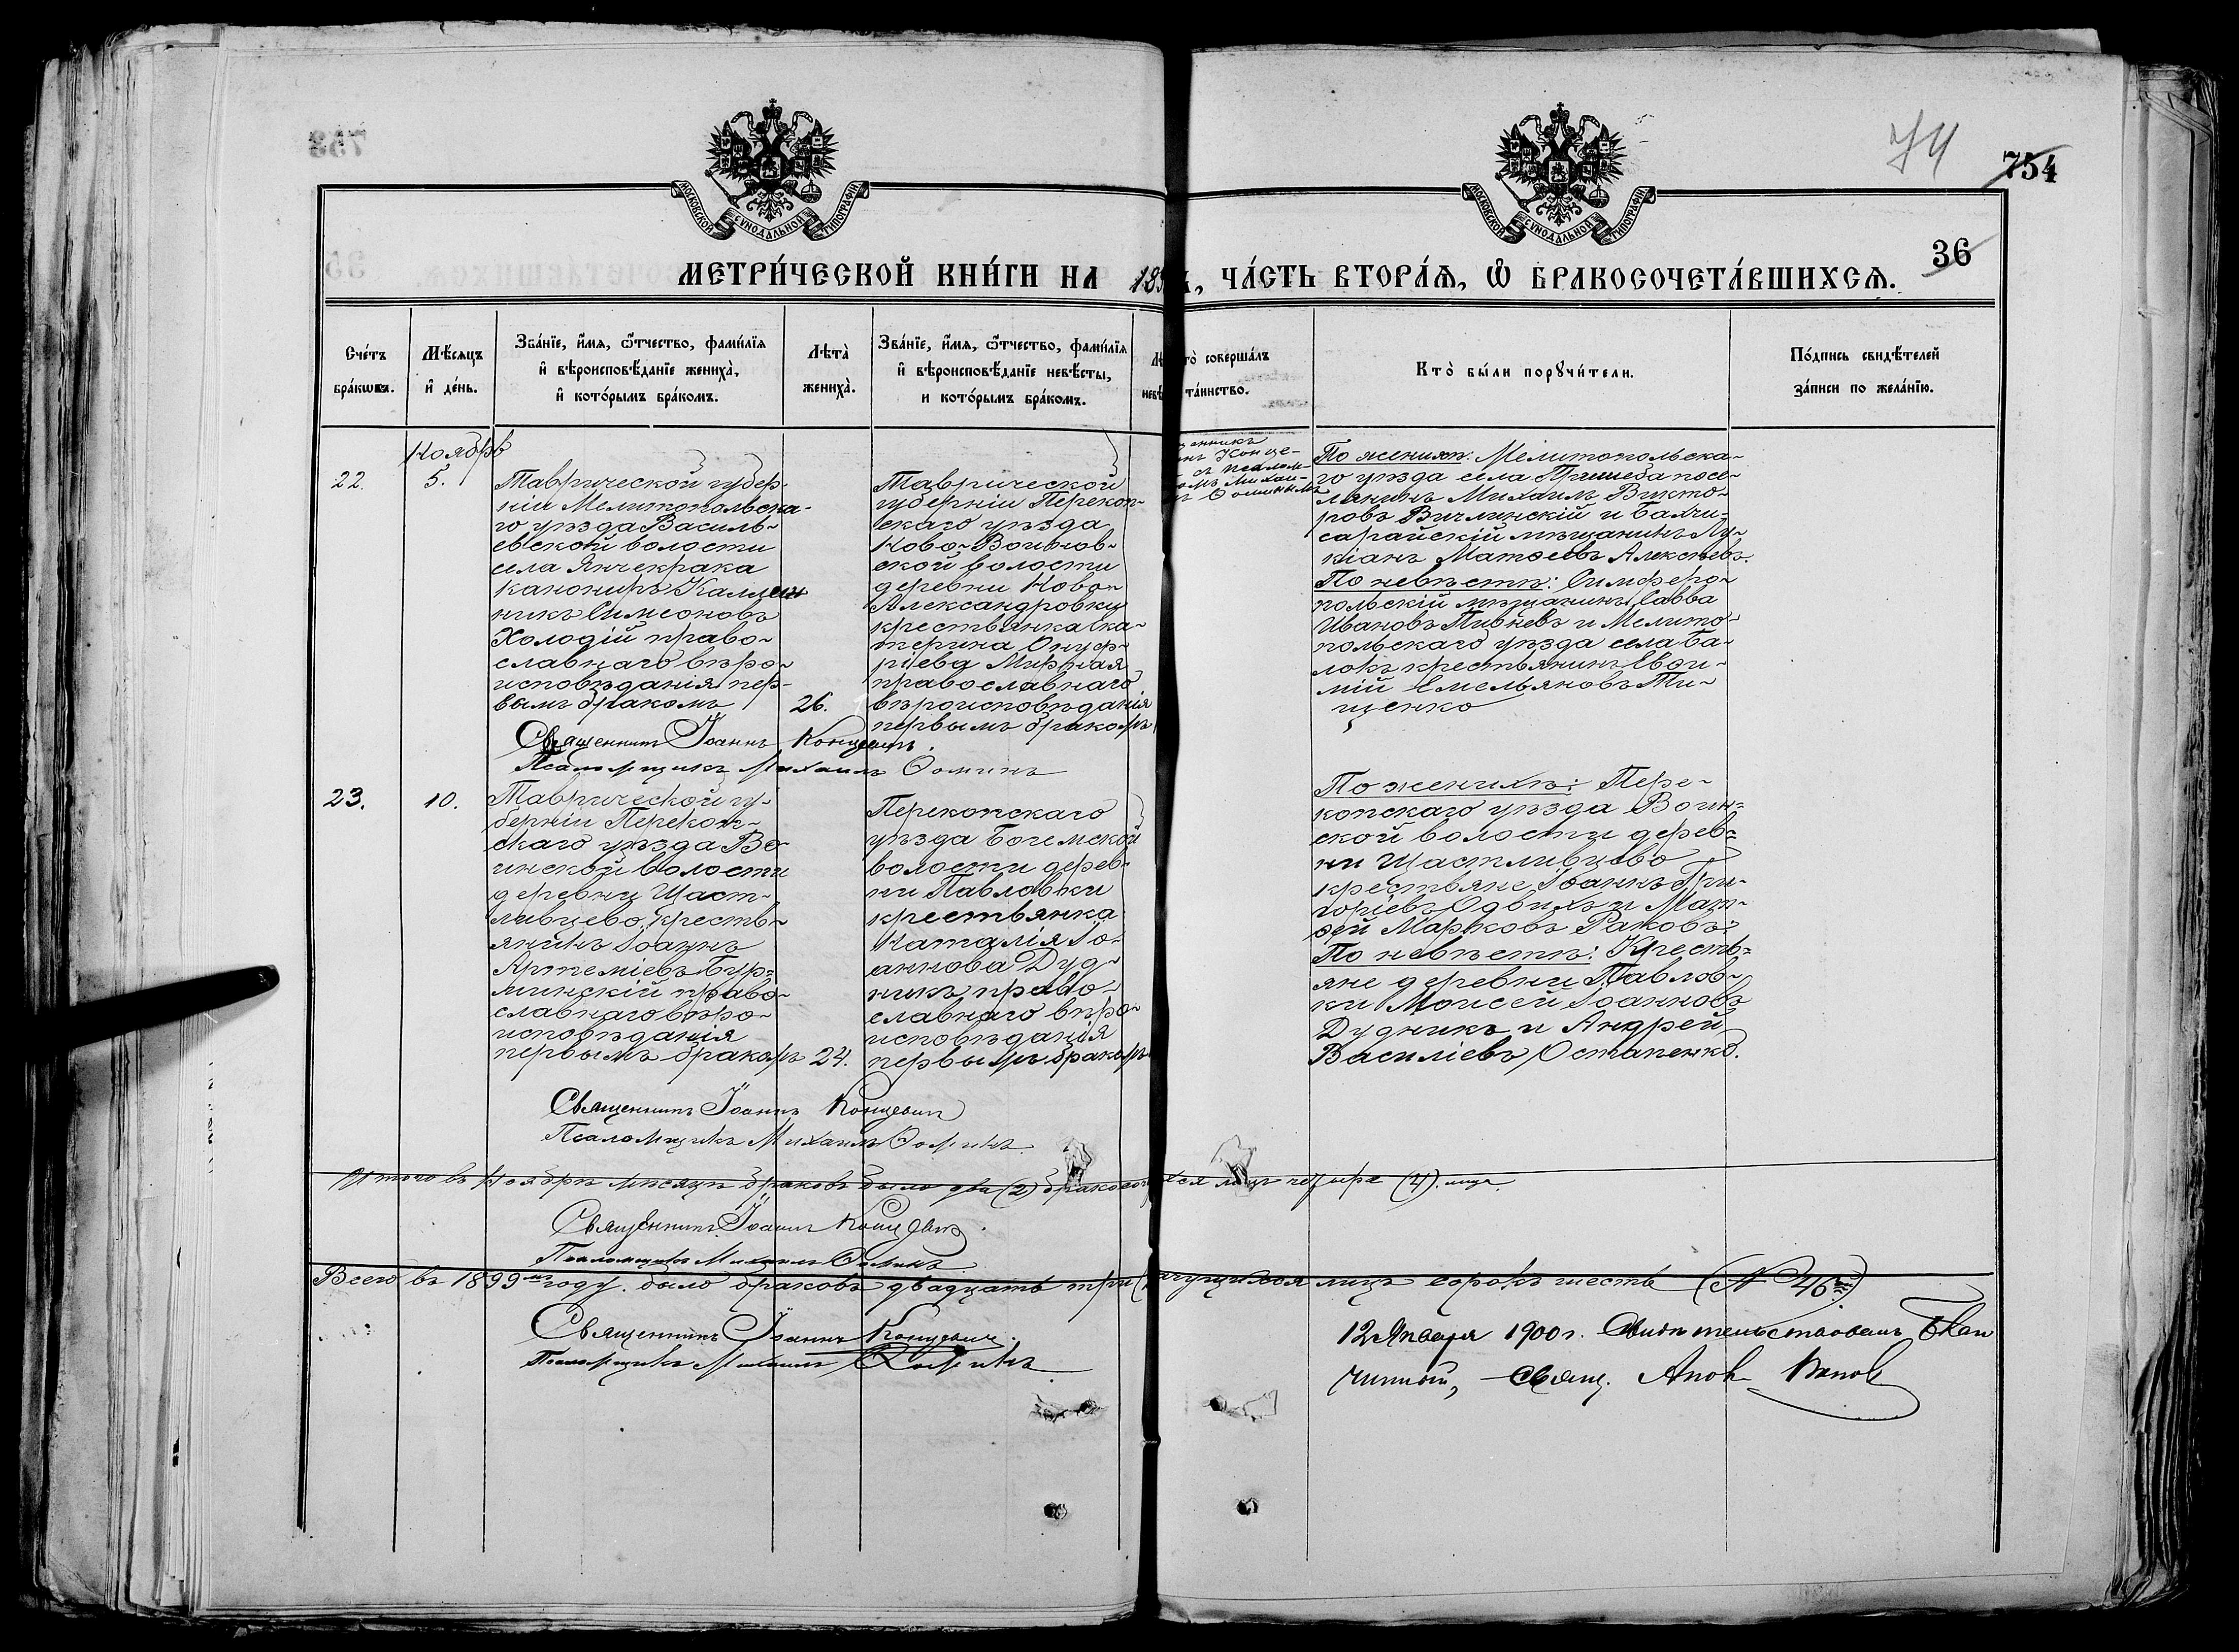 74
754
753
МОСКОВСКОЙ СѴНОДАЛЬНОЙ ТИПОГРАФІИ
МОСКОВСКОЙ СѴНОДАЛЬНОЙ ТИПОГРАФІИ
36
МЕТРИ́ЧЕСКОЙ КНИ́ГИ НА 189
, ЧА́СТЬ ВТОРА́Ѧ, Ѡ БРАКОСОЧЕТА́ВШИХСѦ.
Сче́тъ бра́кѡвъ.
Мѣ́сѧцъ и́ де́нь.
Зва́нїе, и́мѧ, ѻ́тчество, фами́лїѧ
и́ вѣроисповѣ́данїе жениха̀,
и́ кото́рымъ бра́комъ.
Лѣта̀ жениха̀.
Зва́нїе, и́мѧ, ѻ́тчество, фами́лїѧ
и́ вѣроисповѣ́данїе невѣ́сты,
и кото́рымъ бра́комъ.
то̀ соверша́лъ
та́инство.
Кто̀ бы́ли порꙋчи́тели.
По́дпись свидѣ́телей
за́писи по жела́нїю.
Ноябрь
22.
5.
Таврической губер-
нiи Мелитопольска-
го уѣзда Василь-
евской волости
села Янчекрака
канониръ Каллин
никъ Симеоновъ
Холодій право-
славнаго вѣро-
исповѣданія пер-
вымъ бракомъ
26.
Таврической
губерніи Перекоп-
скаго уѣзда
Ново-Воинов-
ской волости
деревни Ново-
Александровки
крестьянка Ека-
терина Онуф-
ріева Мирная
православнаго
вѣроисповѣданія
первымъ бракомъ
енникъ
нъ Конце-
съ псалом-
омъ Михаи-
Ѳоминымъ
По женихѣ: Мелитопольска-
го уѣзда села Пришеба посе-
лянинъ Михаилъ Викто-
ровъ Вичлинскій и Бахчи-
сарайскій мѣщанинъ Лу-
кіанъ Матѳеевъ Алексѣевъ.
По невѣстѣ: Симферо-
польскій мѣщанинъ Савва
Ивановъ Пивневъ и Мелито-
польскаго уѣзда села Ба-
локъ крестьянинъ
мій Емельяновъ Ти-
щенко
Священникъ Іоаннъ Концевичъ.
Псаломщикъ Михаилъ Ѳоминъ
23.
10.
Таврической гу-
берніи Перекоп-
скаго уѣзда Во-
инской волости
деревни Щаст-
ливцево, кресть-
янинъ Іоаннъ
Артеміевъ Бур-
минскій право-
славнаго вѣро-
исповѣданія
первымъ бракомъ
24.
Перекопскаго
уѣзда Богемской
волости дерев-
ни Павловки
крестьянка
Наталія Іо-
аннова Дуд-
никъ право-
славнаго вѣро-
исповѣданія
первымъ бракомъ
По женихѣ: Пере-
копскаго уѣзда Воин-
ской волости дерев-
ни Щастливцево
крестьяне Іоаннъ Гри-
горіевъ Одвихъ и Мат-
ѳей Марковъ Раковъ.
По невѣстѣ: Кресть-
яне деревни Павлов-
ки Моисей Іоанновъ
Дудникъ и Андрей
Василіевъ Остапенко.
Священникъ Іоаннъ Концевич
Псаломщикъ Михаилъ Ѳоминъ
Итого въ Ноябрѣ мѣсяцѣ браковъ было два (2) бракосоч
хся лицъ четыре (4) лица.
Священникъ Іоаннъ Концевичъ.
Псаломщикъ Михаилъ Ѳоминъ
Всего въ 1899мъ году было браковъ двадцать три
ихся лицъ сорокъ шесть (№ 46)
Священникъ Іоаннъ Концевич.
Псаломщикъ Михаилъ Ѳоминъ
12 Января 1900 г. Свидѣтельствовалъ Бла
чинный, свящ.